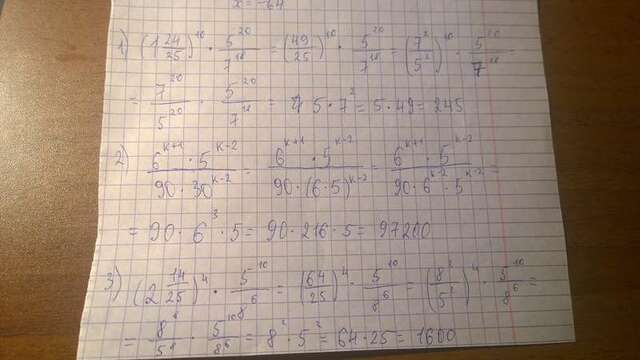 x = -64
1) (1 24/25)^10 · 5^20/7^18 = (49/25)^10 · 5^20/7^18 = (7^2/5^2)^10 · 5^20/7^18 =
= 7^20/5^20 · 5^20/7^18 = 5 · 7^2 = 5 · 49 = 245
2) 6^(к+1) · 5^(к-2) / 90 · 30^(к-2) = 6^(к+1) · 5^(к-2) / 90 · (6 · 5)^(к-2) = 6^(к+1) · 5^(к-2) / 90 · 6^(к-2) · 5^(к-2) =
= 90 · 6^3 · 5 = 90 · 216 · 5 = 97200
3) (2 14/25)^4 · 5^10/8^6 = (64/25)^4 · 5^10/8^6 = (8^2/5^2)^4 · 5^10/8^6 =
= 8^8/5^8 · 5^10/8^6 = 8^2 · 5^2 = 64 · 25 = 1600